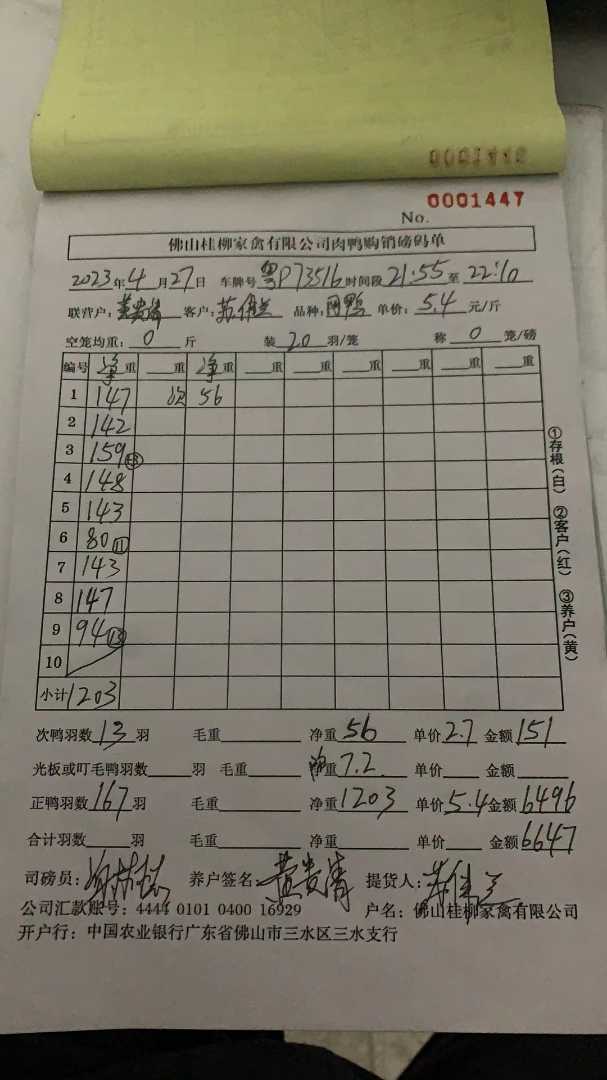 0001447
No.
佛山桂柳家禽有限公司肉鸭购销磅码单
2023年4月27日 车牌号粤P73516时间段21:55至22:10
联营户：黄贵清 客户：苏伟兰 品种： 单价：5.4元/斤
空笼均重：0斤 装20羽/笼 称0笼/磅
编号 净重 重 净重 重 重 重 重 重 重
1 147 次 56
2 142
3 159
4 148
5 143
6 80 ⑪
7 143
8 147
9 94 ⑬
10
小计 1203
①存根(白) ②客户(红) ③养户(黄)
次鸭羽数13羽 毛重 净重56 单价2.7 金额151
光板或叮毛鸭羽数 羽 毛重 净重7.2 单价 金额
正鸭羽数167羽 毛重 净重1203 单价5.4金额6496
合计羽数 羽 毛重 净重 单价 金额6647
司磅员： 养户签名：黄贵清 提货人：苏伟兰
公司汇款账号：4444 0101 0400 16929 户名：佛山桂柳家禽有限公司
开户行：中国农业银行广东省佛山市三水区三水支行